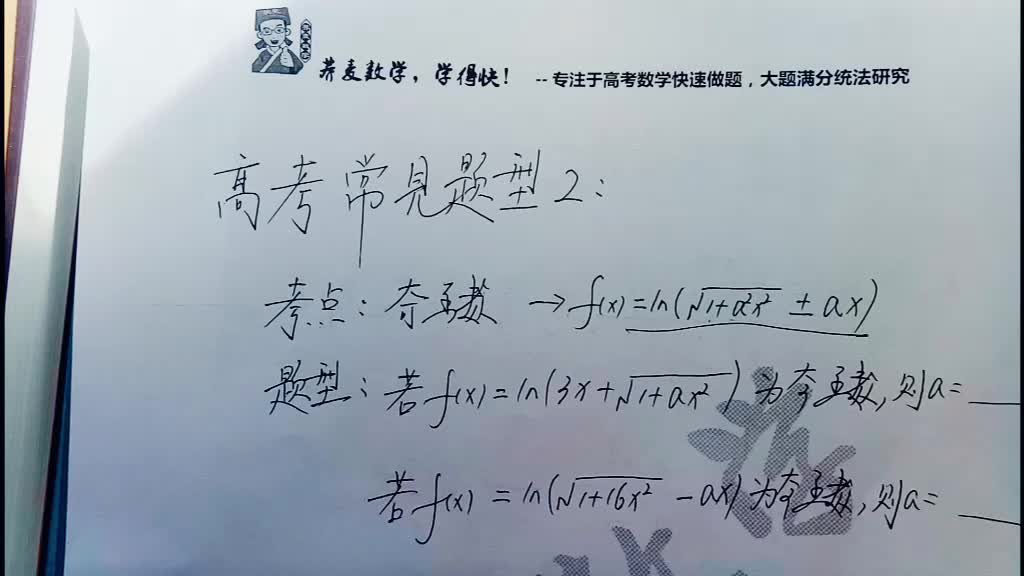 荞麦数学，学得快！ --专注于高考数学快速做题，大题满分统法研究
高考常见题型2：
考点：夺函数 →f(x)=ln(√1+a²x² ± ax)
题型：若f(x)=ln(3x+√1+ax²)为奇函数,则a=
若f(x)=ln(√1+16x² -ax)为奇函数,则a=